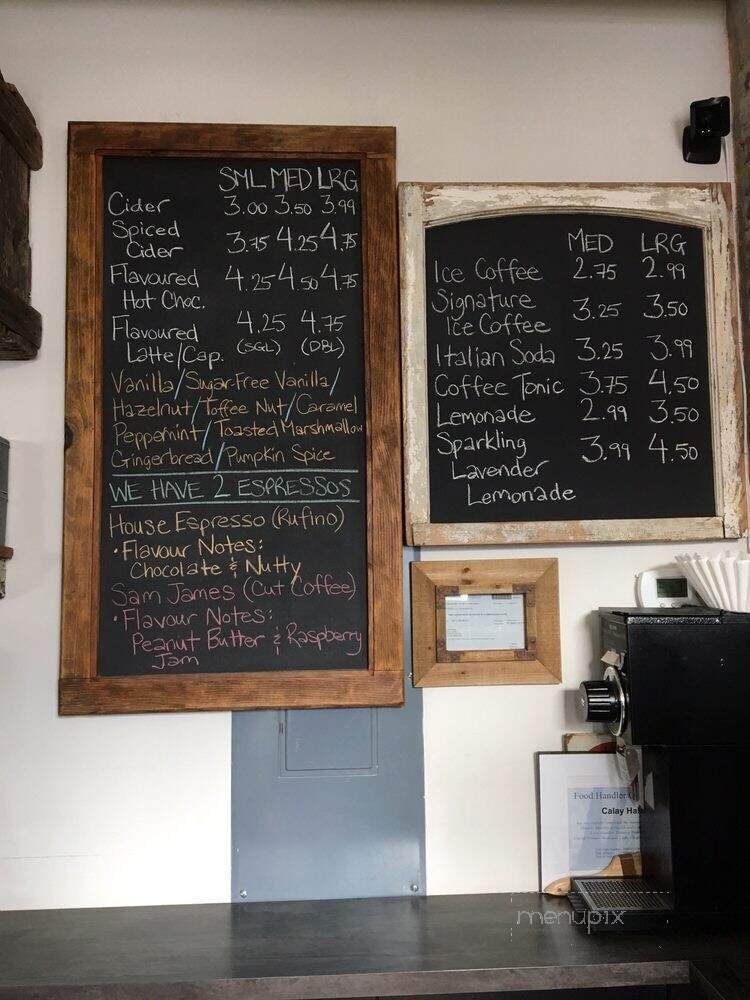 SML MED LRG
Cider 3.00 3.50 3.99
Spiced
Cider 3.75 4.25 4.75
Flavoured 4.25 4.50 4.75
Hot Choc.
Flavoured 4.25 4.75
Latte/Cap. (SGL) (DBL)
Vanilla/Sugar-Free Vanilla/
Hazelnut/Toffee Nut/Caramel
Peppermint/Toasted Marshmallow
Gingerbread/Pumpkin Spice
WE HAVE 2 ESPRESSOS
House Espresso (Rufino)
• Flavour Notes:
Chocolate & Nutty
Sam James (Cut Coffee)
• Flavour Notes:
Peanut Butter & Raspberry
Jam
MED LRG
Ice Coffee 2.75 2.99
Signature
Ice Coffee 3.25 3.50
Italian Soda 3.25 3.99
Coffee Tonic 3.75 4.50
Lemonade 2.99 3.50
Sparkling 3.99 4.50
Lavender
Lemonade
Food Handler
Calay
menupix